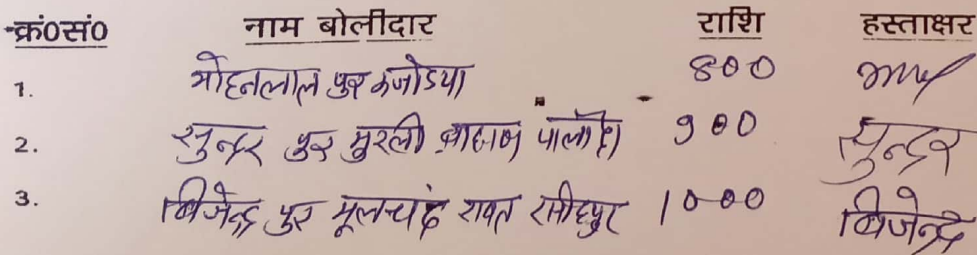 क्रं0सं0 नाम बोलीदार राशि हस्ताक्षर
1. मोहनलाल पुत्र कजोडया 800
2. सुन्दर पुत्र मुरली ब्राह्मण पालोदा 900 सुन्दर
3. बिजेन्द्र पुत्र मूलचंद रावत रसीदपुर 1000 बिजेन्द्र